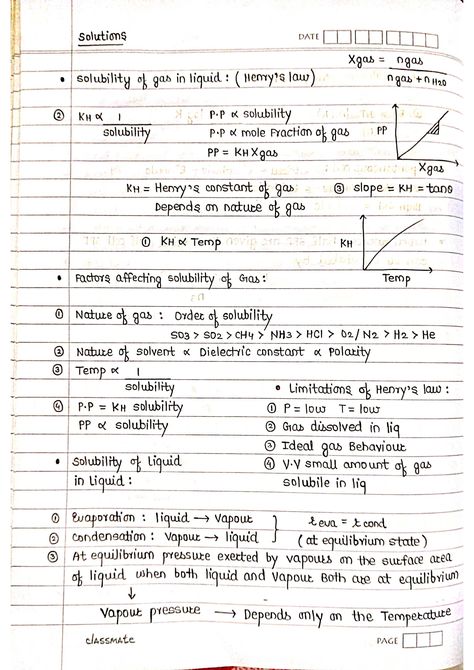 Solutions
DATE
Xgas = ngas / ngas + nH2O
• solubility of gas in liquid : (Henry's law)
② KH ∝ 1 / solubility
P.P ∝ solubility
P.P ∝ mole Fraction of gas
PP = KH Xgas
PP
Xgas
KH = Henry's constant of gas
Depends on nature of gas
③ slope = KH = tanθ
① KH ∝ Temp
KH
Temp
• Factors affecting solubility of Gas :
① Nature of gas : Order of solubility
SO3 > SO2 > CH4 > NH3 > HCl > O2/N2 > H2 > He
② Nature of solvent ∝ Dielectric constant ∝ Polarity
③ Temp ∝ 1 / solubility
④ P.P = KH solubility
PP ∝ solubility
• Limitations of Henry's law :
① P = low T = low
② Gas dissolved in liq
③ Ideal gas Behaviour
④ V.V small amount of gas
solubile in liq
• Solubility of Liquid
in Liquid :
① Evaporation : liquid → Vapour
② Condensation : Vapour → liquid
r eva = r cond
(at equilibrium state)
③ At equilibrium pressure exerted by vapours on the surface area
of liquid when both liquid and Vapour Both are at equilibrium
↓
Vapour pressure → Depends only on the Temperature
classmate
PAGE